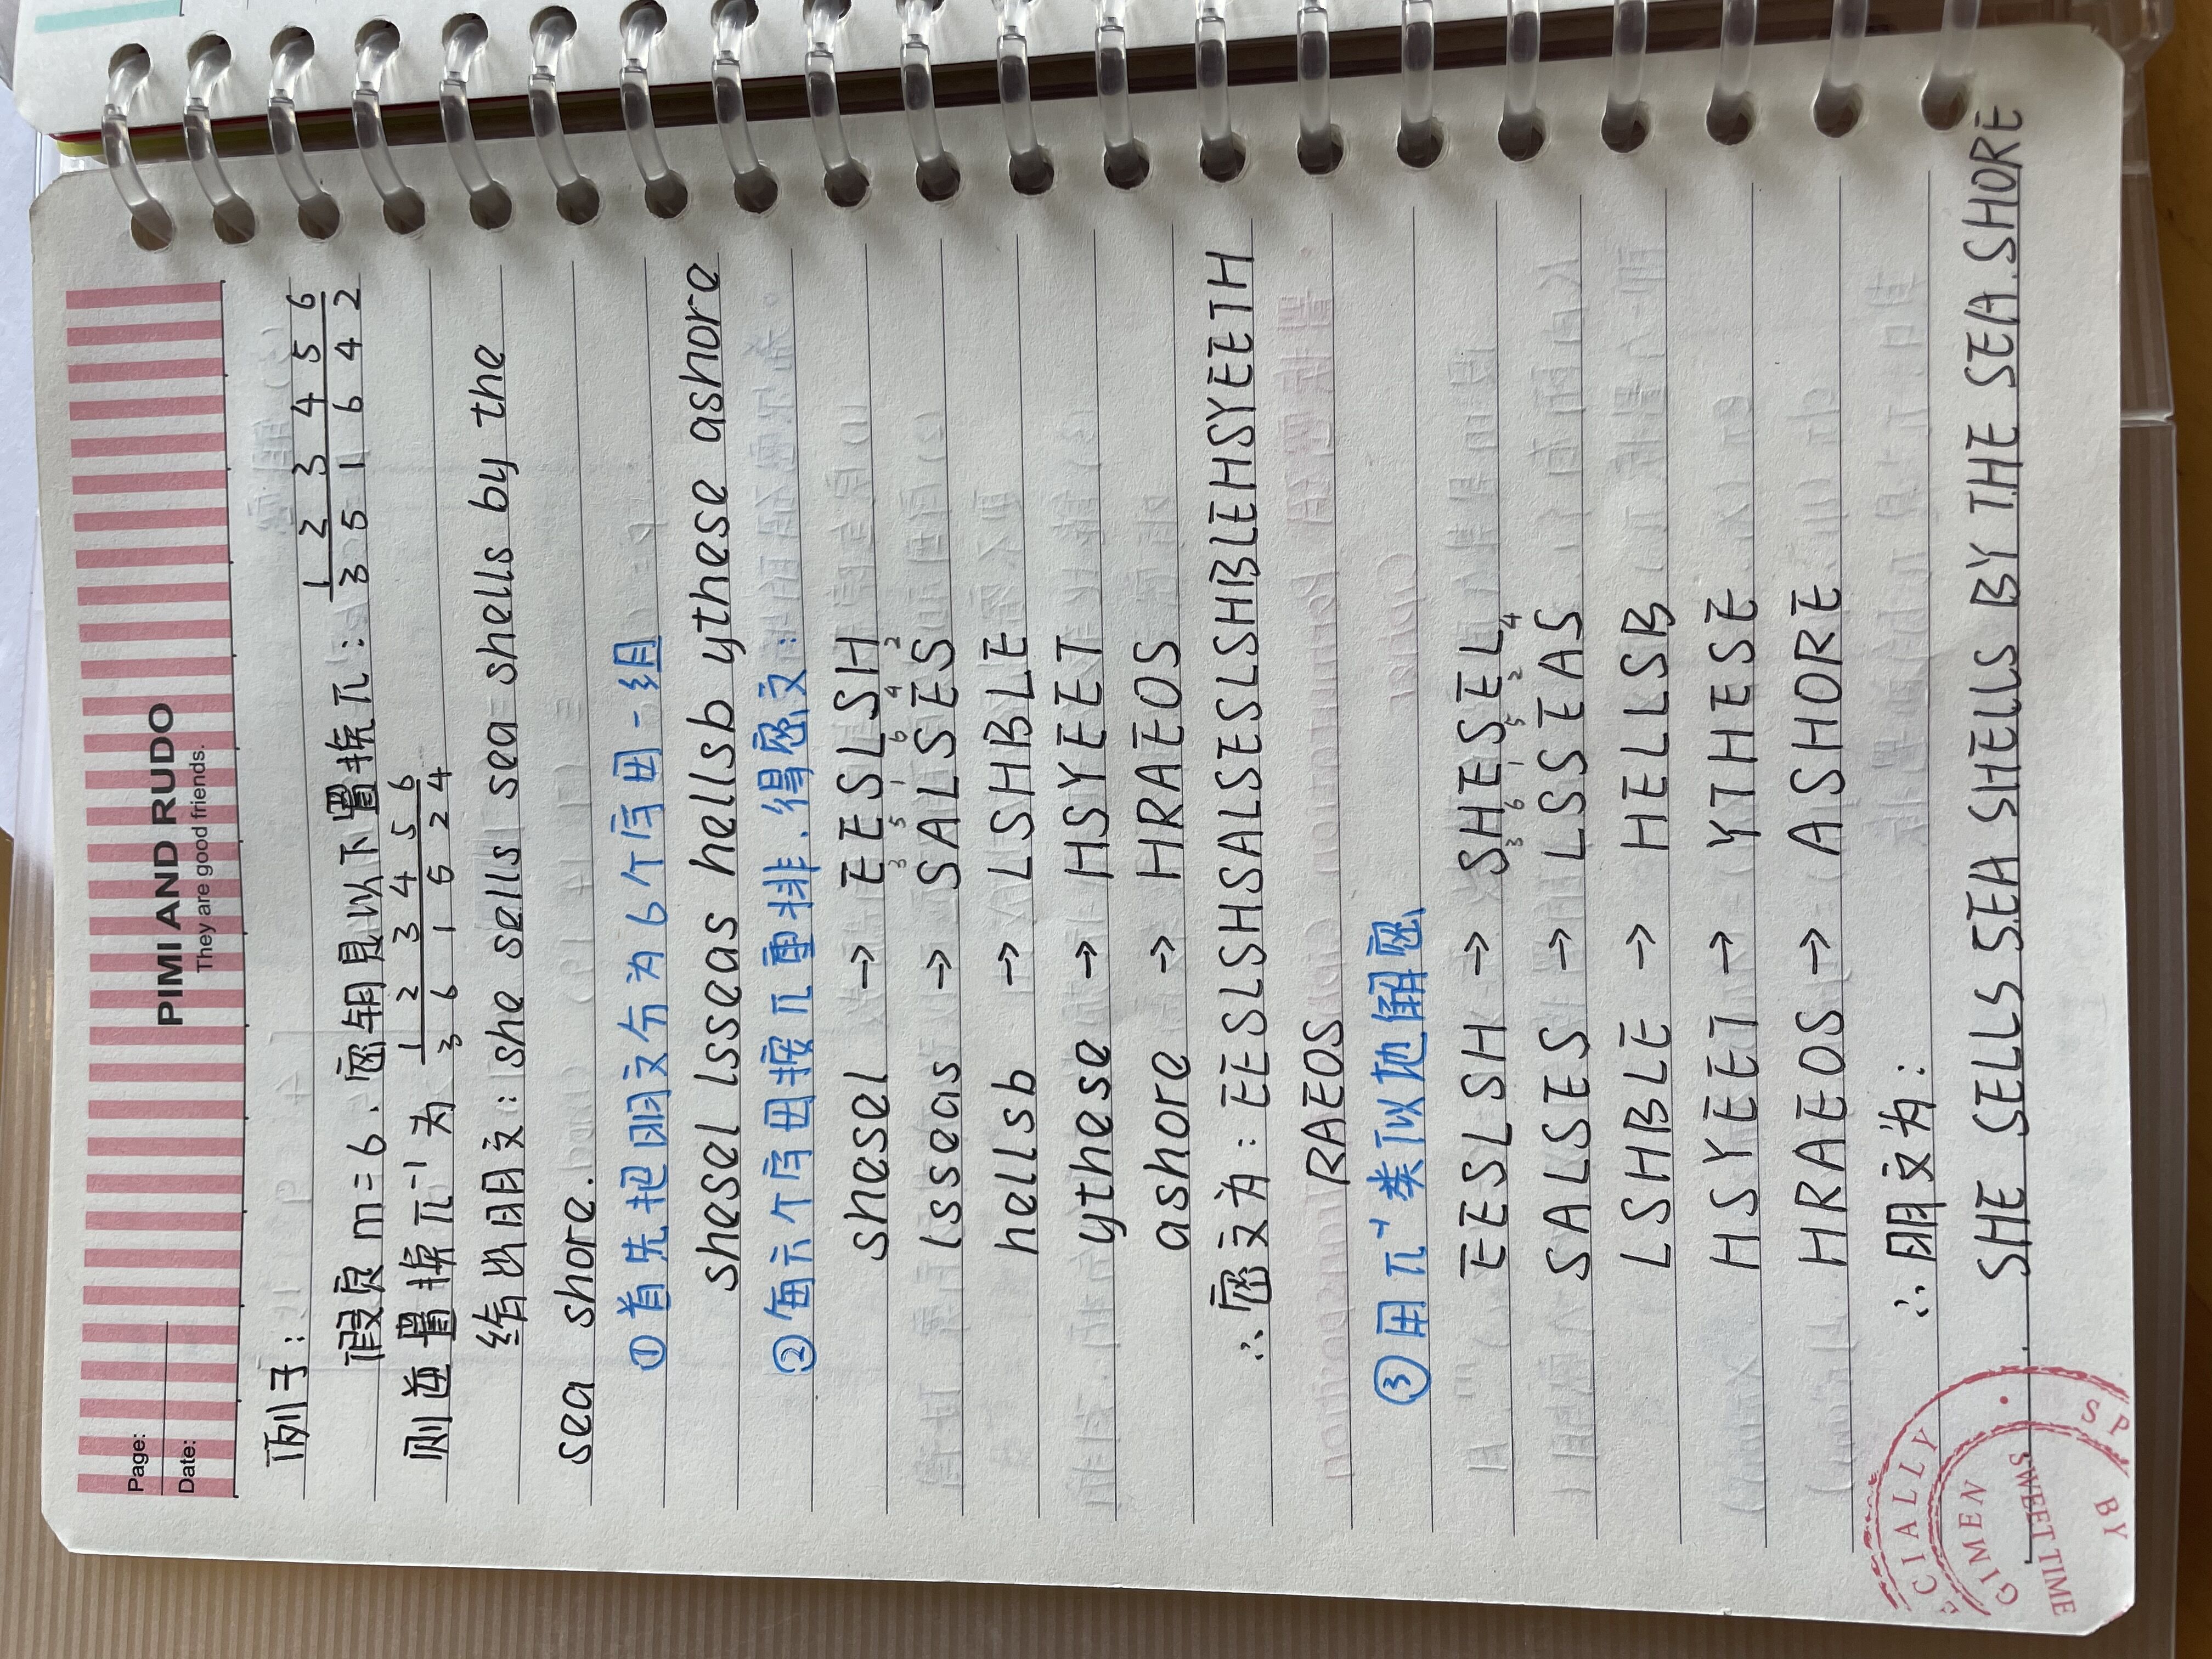 Page:
Date:
PIMI AND RUDO
They are good friends.
例子:
1 2 3 4 5 6
假定 m=6. 密钥是以下置换π: 3 5 1 6 4 2
1 2 3 4 5 6
则逆置换π⁻¹为 3 6 1 5 2 4
给出明文: she sells sea shells by the
sea shore.
①首先把明文分为6个字母一组
shesel lsseas hellsb ythese ashore
②每六个字母按π重排,得密文:
shesel → EESLSH
3 5 1 6 4 2
lsseas → SALSES
hellsb → LSHBLE
ythese → HSYEET
ashore → HRAEOS
∴密文为: EESLSHSALSESLSHBLEHSYEETH
RAEOS
③用π⁻¹类似地解密
EESLSH → SHESEL
3 6 1 5 2 4
SALSES → LSSEAS
LSHBLE → HELLSB
HSYEET → YTHESE
HRAEOS → ASHORE
∴明文为:
SHE SELLS SEA SHELLS BY THE SEA SHORE
ECIALLY
GIMEN
SWEET TIME
BY
SP